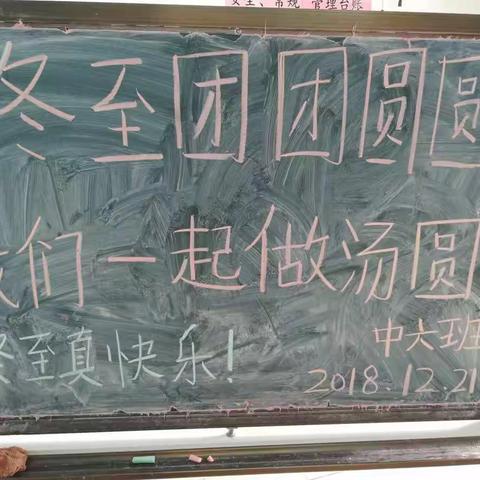 安全、常规 管理台账
冬至团团圆圆
我们一起做汤圆
冬至真快乐!
中六班
2018.12.21